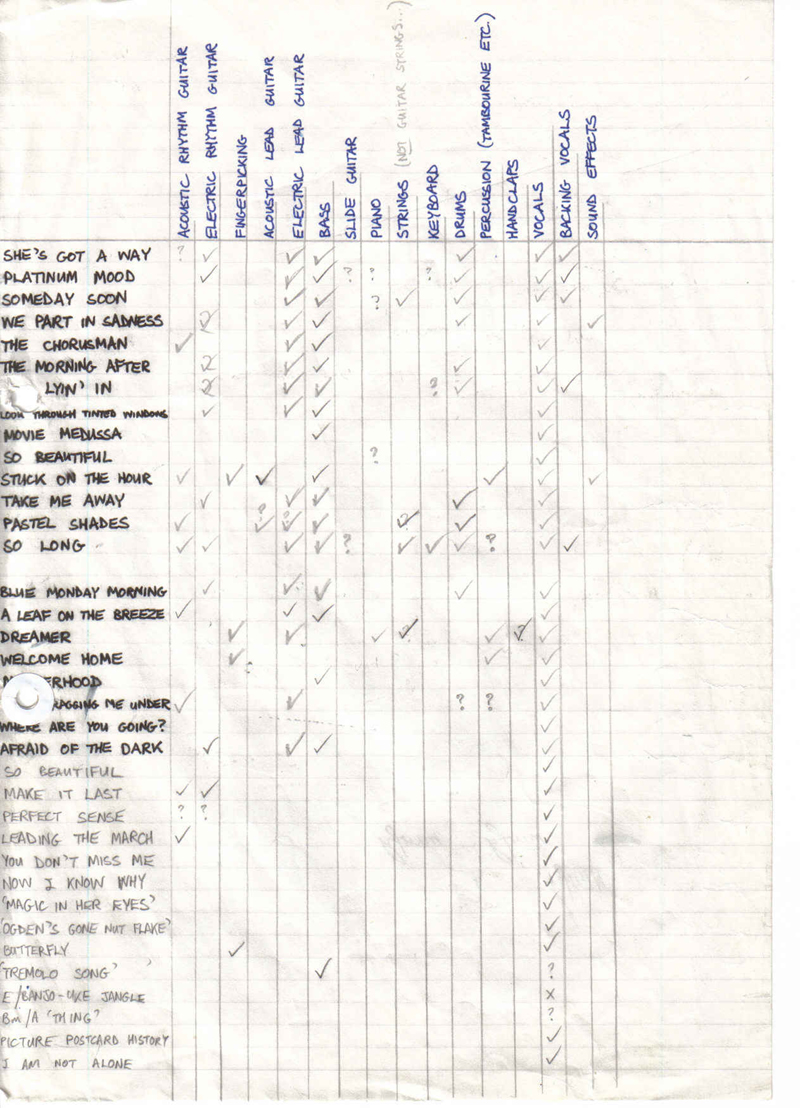 ACOUSTIC RHYTHM GUITAR
ELECTRIC RHYTHM GUITAR
FINGERPICKING
ACOUSTIC LEAD GUITAR
ELECTRIC LEAD GUITAR
BASS
SLIDE GUITAR
PIANO
STRINGS (NOT GUITAR STRINGS...)
KEYBOARD
DRUMS
PERCUSSION (TAMBOURINE ETC.)
HANDCLAPS
VOCALS
BACKING VOCALS
SOUND EFFECTS
SHE'S GOT A WAY ? ✓ ✓ ✓ ✓ ✓ ✓
PLATINUM MOOD ✓ ✓ ✓ ? ? ? ✓ ✓ ✓
SOMEDAY SOON ✓ ✓ ? ✓ ✓ ✓ ✓
WE PART IN SADNESS ✓ ✓ ✓ ✓ ✓
THE CHORUSMAN ✓ ✓ ✓ ✓
THE MORNING AFTER ✓ ✓ ✓ ✓
LYIN' IN ✓ ✓ ? ✓ ✓ ✓
LOOK THROUGH TINTED WINDOWS ✓ ✓ ✓ ✓
MOVIE MEDUSSA ✓ ✓
SO BEAUTIFUL ? ✓
STUCK ON THE HOUR ✓ ✓ ✓ ✓ ✓ ✓ ✓
TAKE ME AWAY ✓ ✓ ✓ ✓ ✓
PASTEL SHADES ✓ ✓ ✓ ✓ ✓ ✓ ✓
SO LONG ✓ ✓ ✓ ✓ ? ✓ ✓ ✓ ? ✓ ✓
BLUE MONDAY MORNING ✓ ✓ ✓ ✓ ✓
A LEAF ON THE BREEZE ✓ ✓ ✓ ✓
DREAMER ✓ ✓ ✓ ✓ ✓ ✓ ✓
WELCOME HOME ✓ ✓ ✓
ERHOOD ✓ ✓
RAGGING ME UNDER ✓ ✓ ? ? ✓
WHERE ARE YOU GOING? ✓
AFRAID OF THE DARK ✓ ✓ ✓ ✓
SO BEAUTIFUL ✓
MAKE IT LAST ✓ ✓ ✓
PERFECT SENSE ? ? ✓
LEADING THE MARCH ✓ ✓
YOU DON'T MISS ME ✓
NOW I KNOW WHY ✓
'MAGIC IN HER EYES' ✓
'OGDEN'S GONE NUT FLAKE' ✓
BUTTERFLY ✓ ✓
'TREMOLO SONG' ✓ ?
E/BANJO-UKE JANGLE X
Bm/A 'THING' ?
PICTURE POSTCARD HISTORY ✓
I AM NOT ALONE ✓